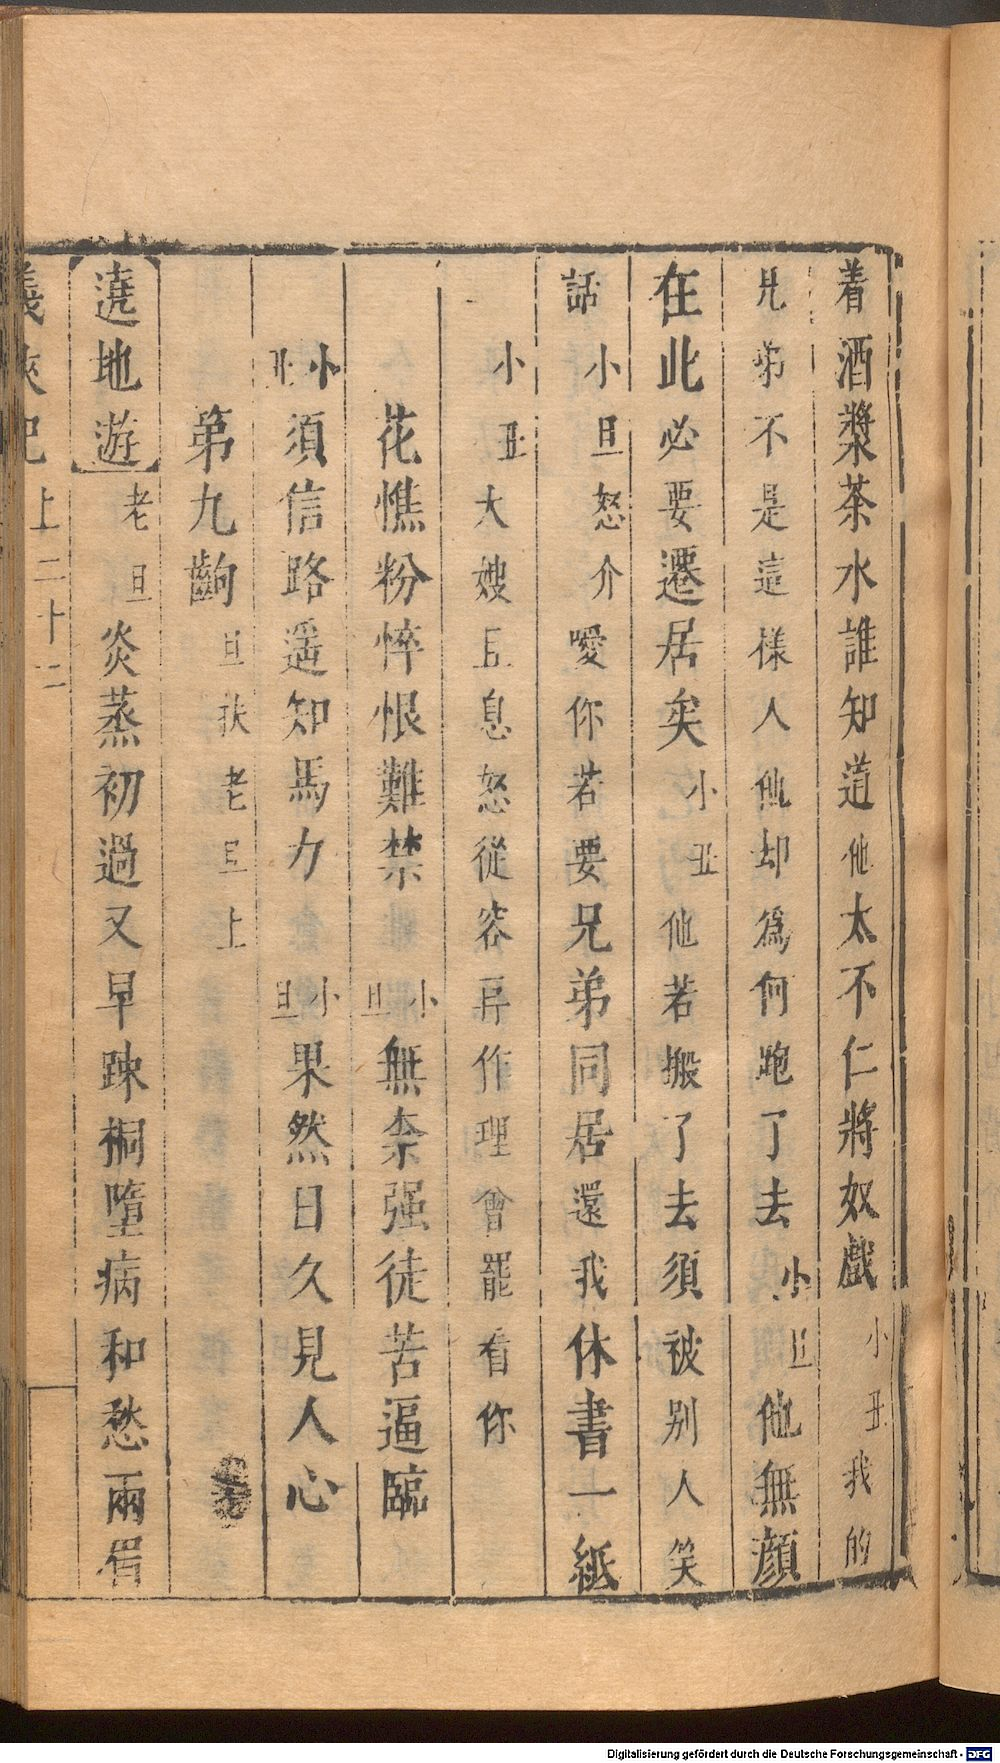 着酒漿茶水誰知道他太不仁將奴戲小丑我的
兄弟不是這樣人他却爲何跑了去小旦他無顔
在此必要遷居矣小丑他若搬了去須被别人笑
話小旦怒介嗳你若要兄弟同居還我休書一紙
小丑大嫂且息怒從容再作理會罷看你
花憔粉悴恨難禁小旦無柰强徒苦逼臨
小丑須信路遥知馬力小旦果然日久見人心
第九齣旦扶老旦上
遶地遊老旦炎蒸初過又早踈桐墮病和愁兩眉
義俠記上二十二
Digitalisierung gefördert durch die Deutsche Forschungsgemeinschaft - DFG